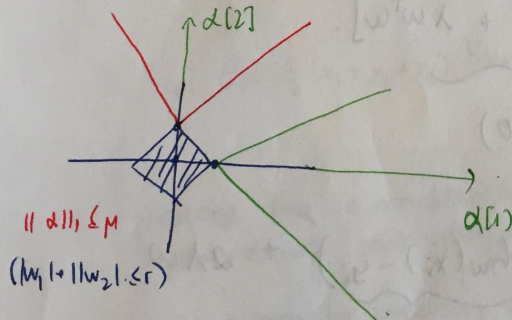 α[2]
α[1]
|| α||₁ ≤ μ
(|w₁|+||w₂|.≤r)